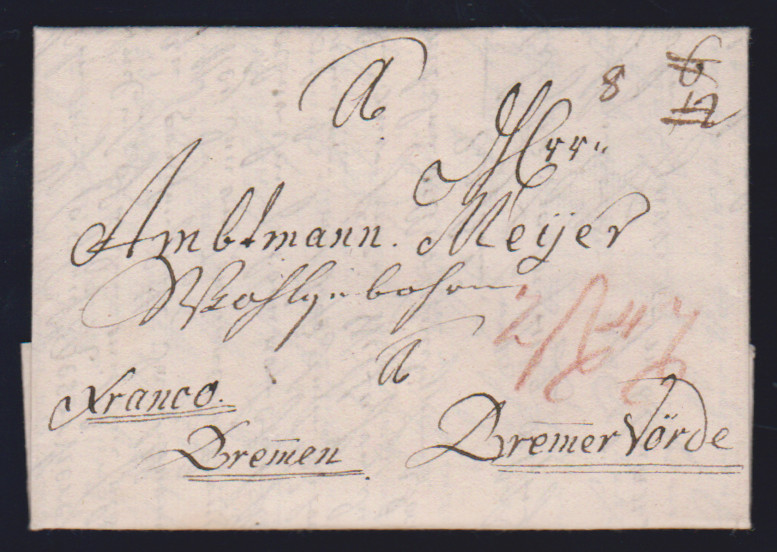 A
8 6
12
Herrn
Ambtmann. Meyer
Wohlgebohrn
a
Franco.
Bremen BremerVörde